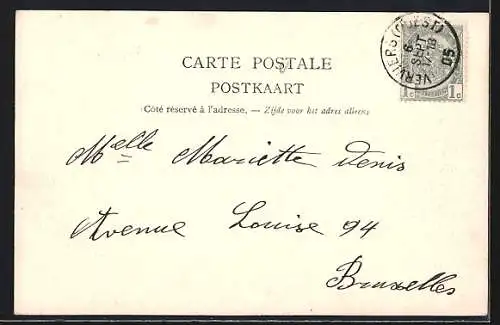 CARTE POSTALE
POSTKAART
(Côté réservé à l'adresse. — Zijde voor het adres alleen)
VERVIERS (OUEST)
6
SEPT
17-18
05
1c 1c
Melle Mariette Denis
Avenue Louise 94
Bruxelles